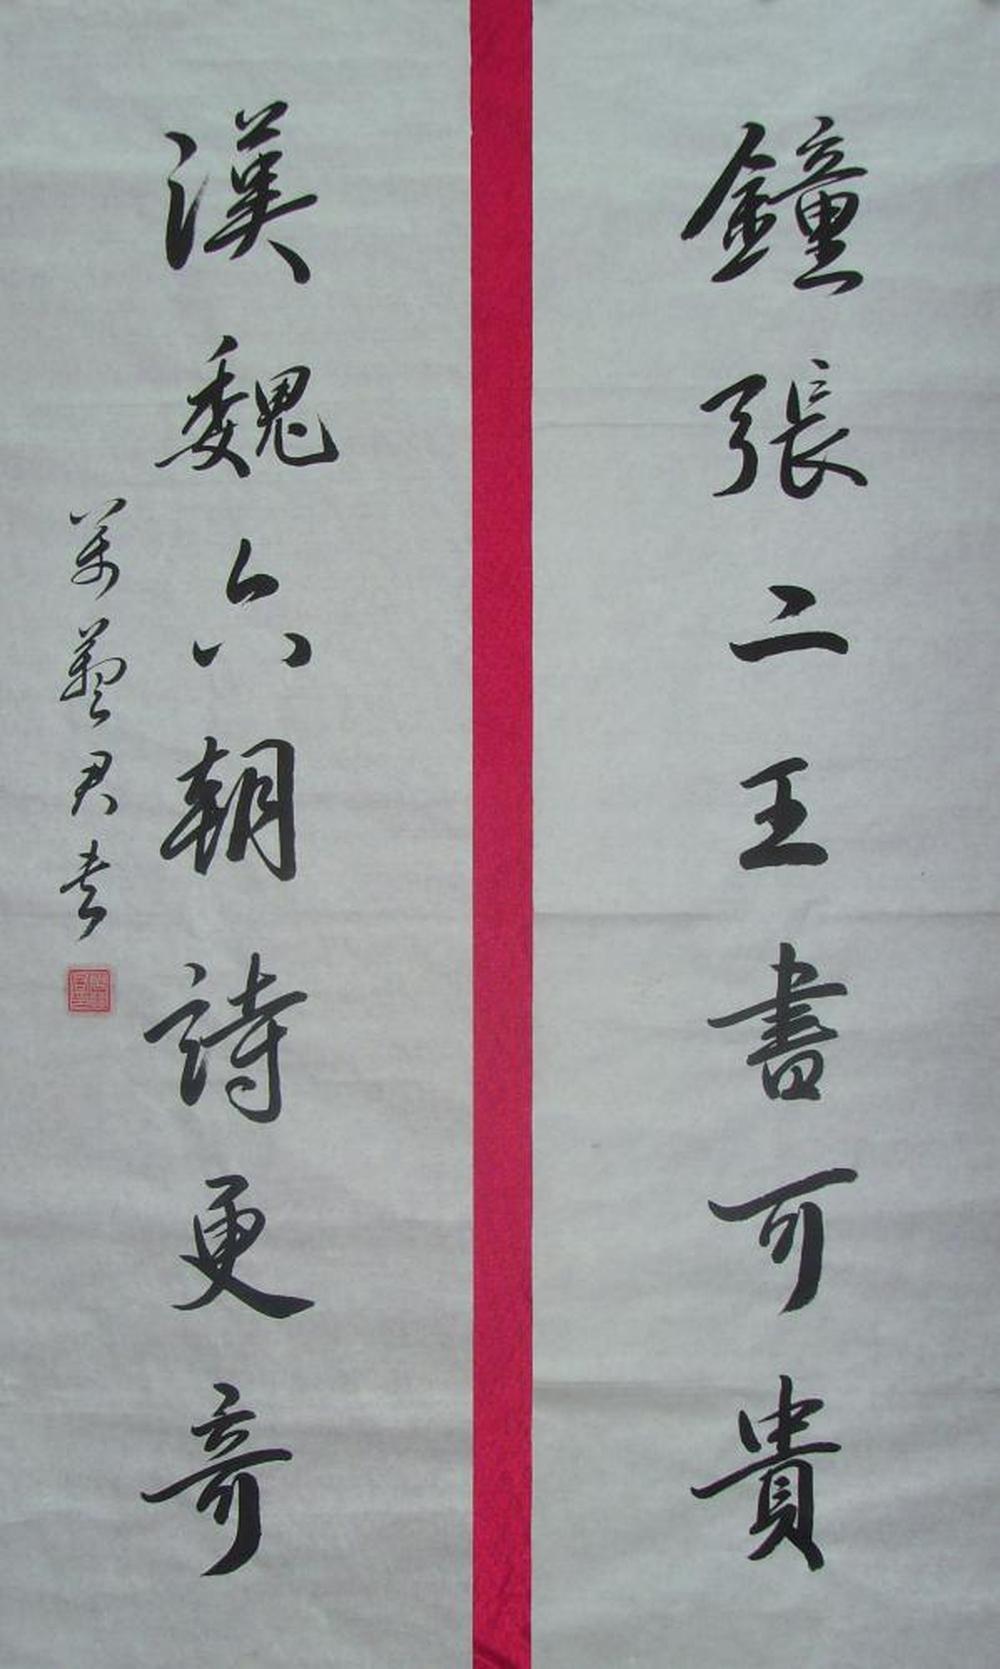 鐘張二王書可貴
漢魏六朝詩更奇